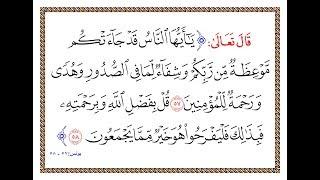 قَالَ تَعَالَىٰ: ﴿ يَٰٓأَيُّهَا ٱلنَّاسُ قَدۡ جَآءَتۡكُم
مَّوۡعِظَةٞ مِّن رَّبِّكُمۡ وَشِفَآءٞ لِّمَا فِي ٱلصُّدُورِ وَهُدٗى
وَرَحۡمَةٞ لِّلۡمُؤۡمِنِينَ ٥٧ قُلۡ بِفَضۡلِ ٱللَّهِ وَبِرَحۡمَتِهِۦ
فَبِذَٰلِكَ فَلۡيَفۡرَحُواْ هُوَ خَيۡرٞ مِّمَّا يَجۡمَعُونَ ٥٨ ﴾
يونس: ٥٧ - ٥٨